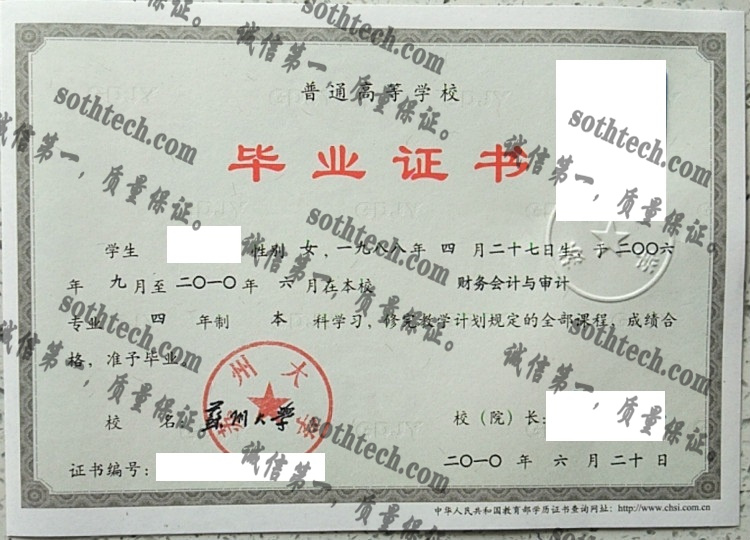 普通高等学校
毕业证书
学生 性别 女，一九八八年 四 月二十七日生，于二〇〇六
年 九月至 二〇一〇年 六 月在本校 财务会计与审计
专业 四 年制 本 科学习，修完教学计划规定的全部课程，成绩合
格，准予毕业
校 名：苏州大学 校（院）长：
证书编号： 二〇一〇 年 六 月 二十 日
中华人民共和国教育部学历证书查询网址：http://www.chsi.com.cn
苏州大学
sothtech.com
诚信第一，质量保证。
sothtech.com
诚信第一，质量保证。
sothtech.com
诚信第一，质量保证。
sothtech.com
诚信第一，质量保证。
sothtech.com
诚信第一，质量保证。
sothtech.com
诚信第一，质量保证。
sothtech.com
诚信第一，质量保证。